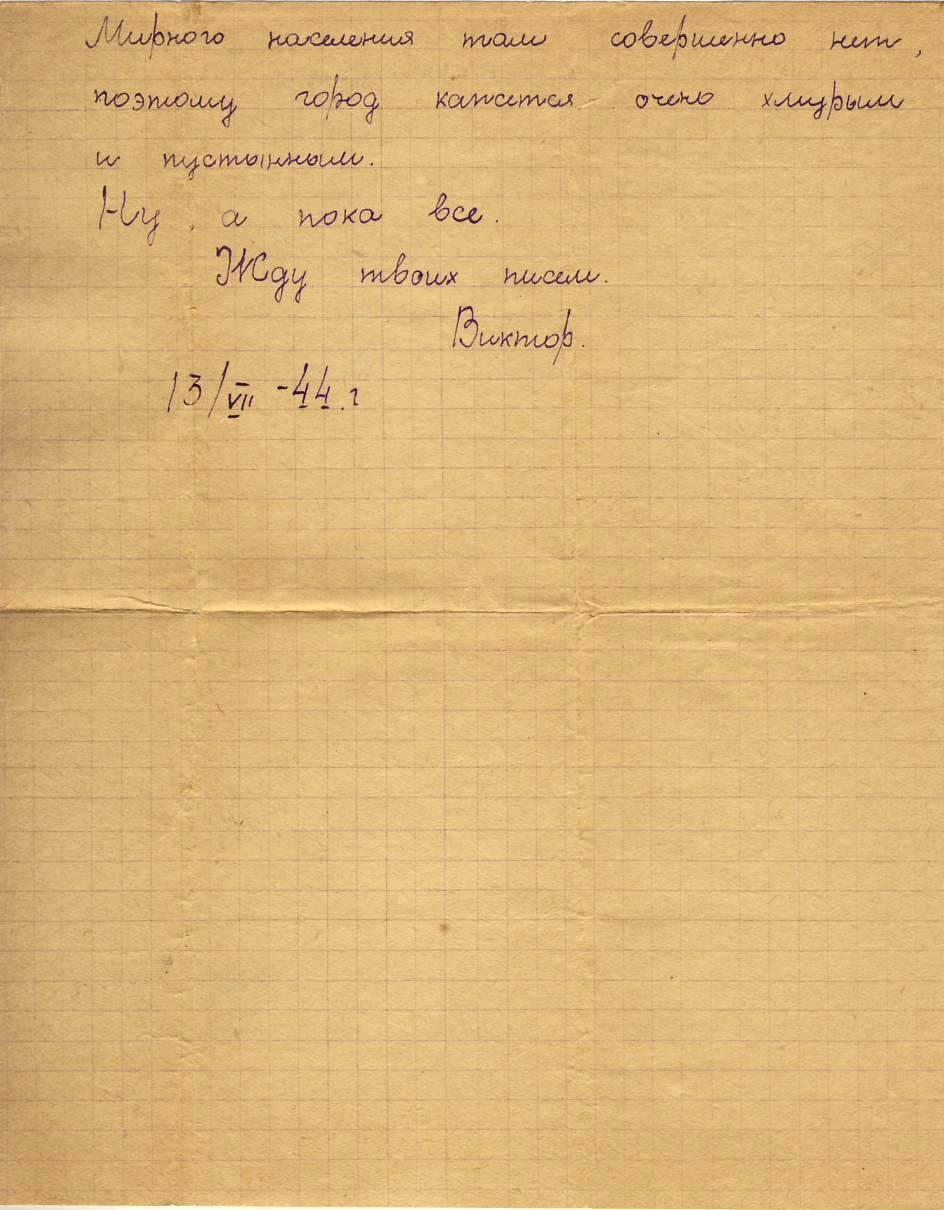 Мирного населения там совершенно нет,
поэтому город кажется очень хмурым
и пустынным.
Ну, а пока все.
Жду твоих писем.
Виктор.
13/VII -44.г